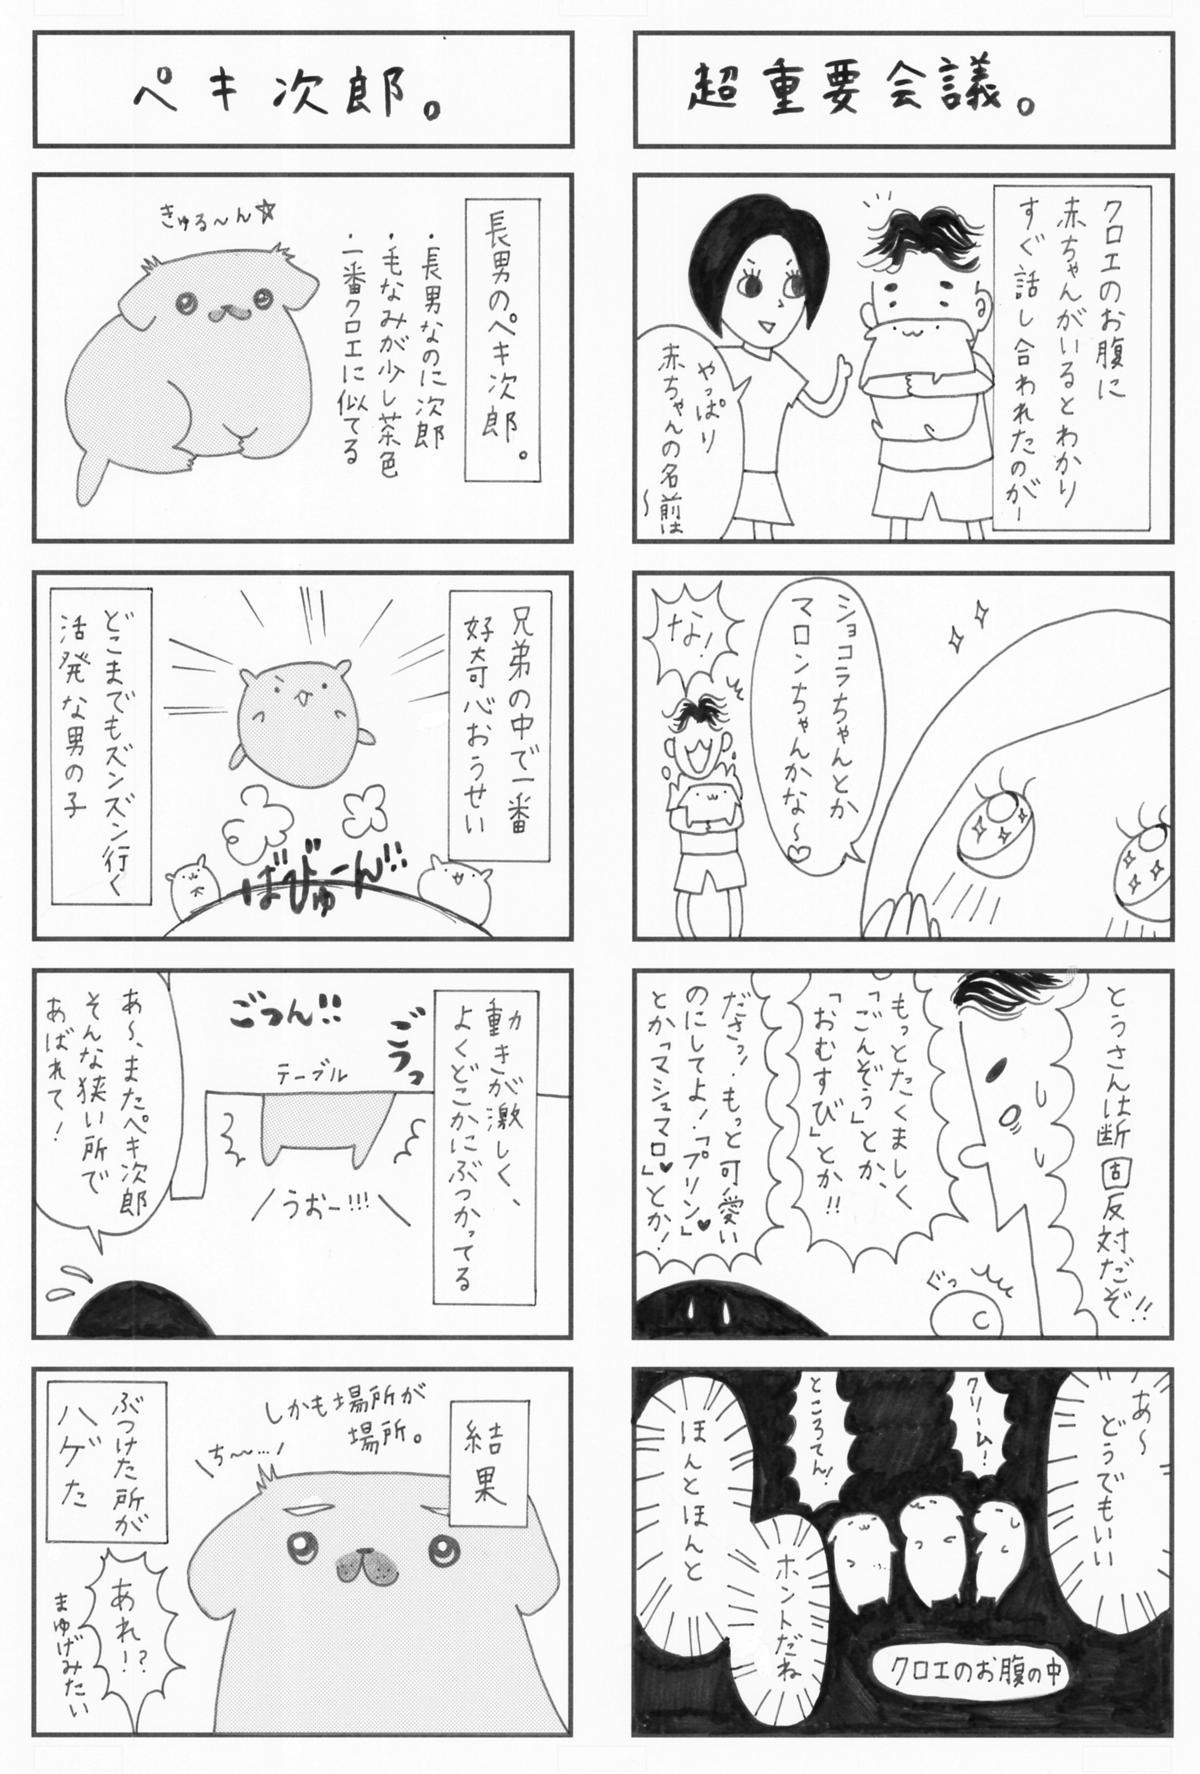 超重要会議。
クロエのお腹に
赤ちゃんがいるとわかり
すぐ話し合われたのが―
やっぱり
赤ちゃんの名前は
〜
ショコラちゃんとか
マロンちゃんかな〜♡
な!
とうさんは断固反対だぞ!!
もっとたくましく
「ごんぞう」とか、
「おむすび」とか!!
ださっ!もっと可愛い
のにしてよ!「プリン」♥
とか「マシュマロ」♥とか!
ぐっ
あ〜
どうでもいい
クリーム!
ところてん!
ホントだね
ほんとほんと
クロエのお腹の中
ペキ次郎。
長男のペキ次郎。
・長男なのに次郎
・毛なみが少し茶色
・一番クロエに似てる
きゅる〜ん☆
兄弟の中で一番
好奇心おうせい
ばびゅーん!!
どこまでもズンズン行く
活発な男の子
動きが激しく、
よくどこかにぶつかってる
ごうっ
ごつん!!
テーブル
うおー!!!
あ〜、またペキ次郎
そんな狭い所で
あばれて!
結果
しかも場所が
場所。
ち〜…
ぶつけた所が
ハゲた
あれ!?
まゆげみたい